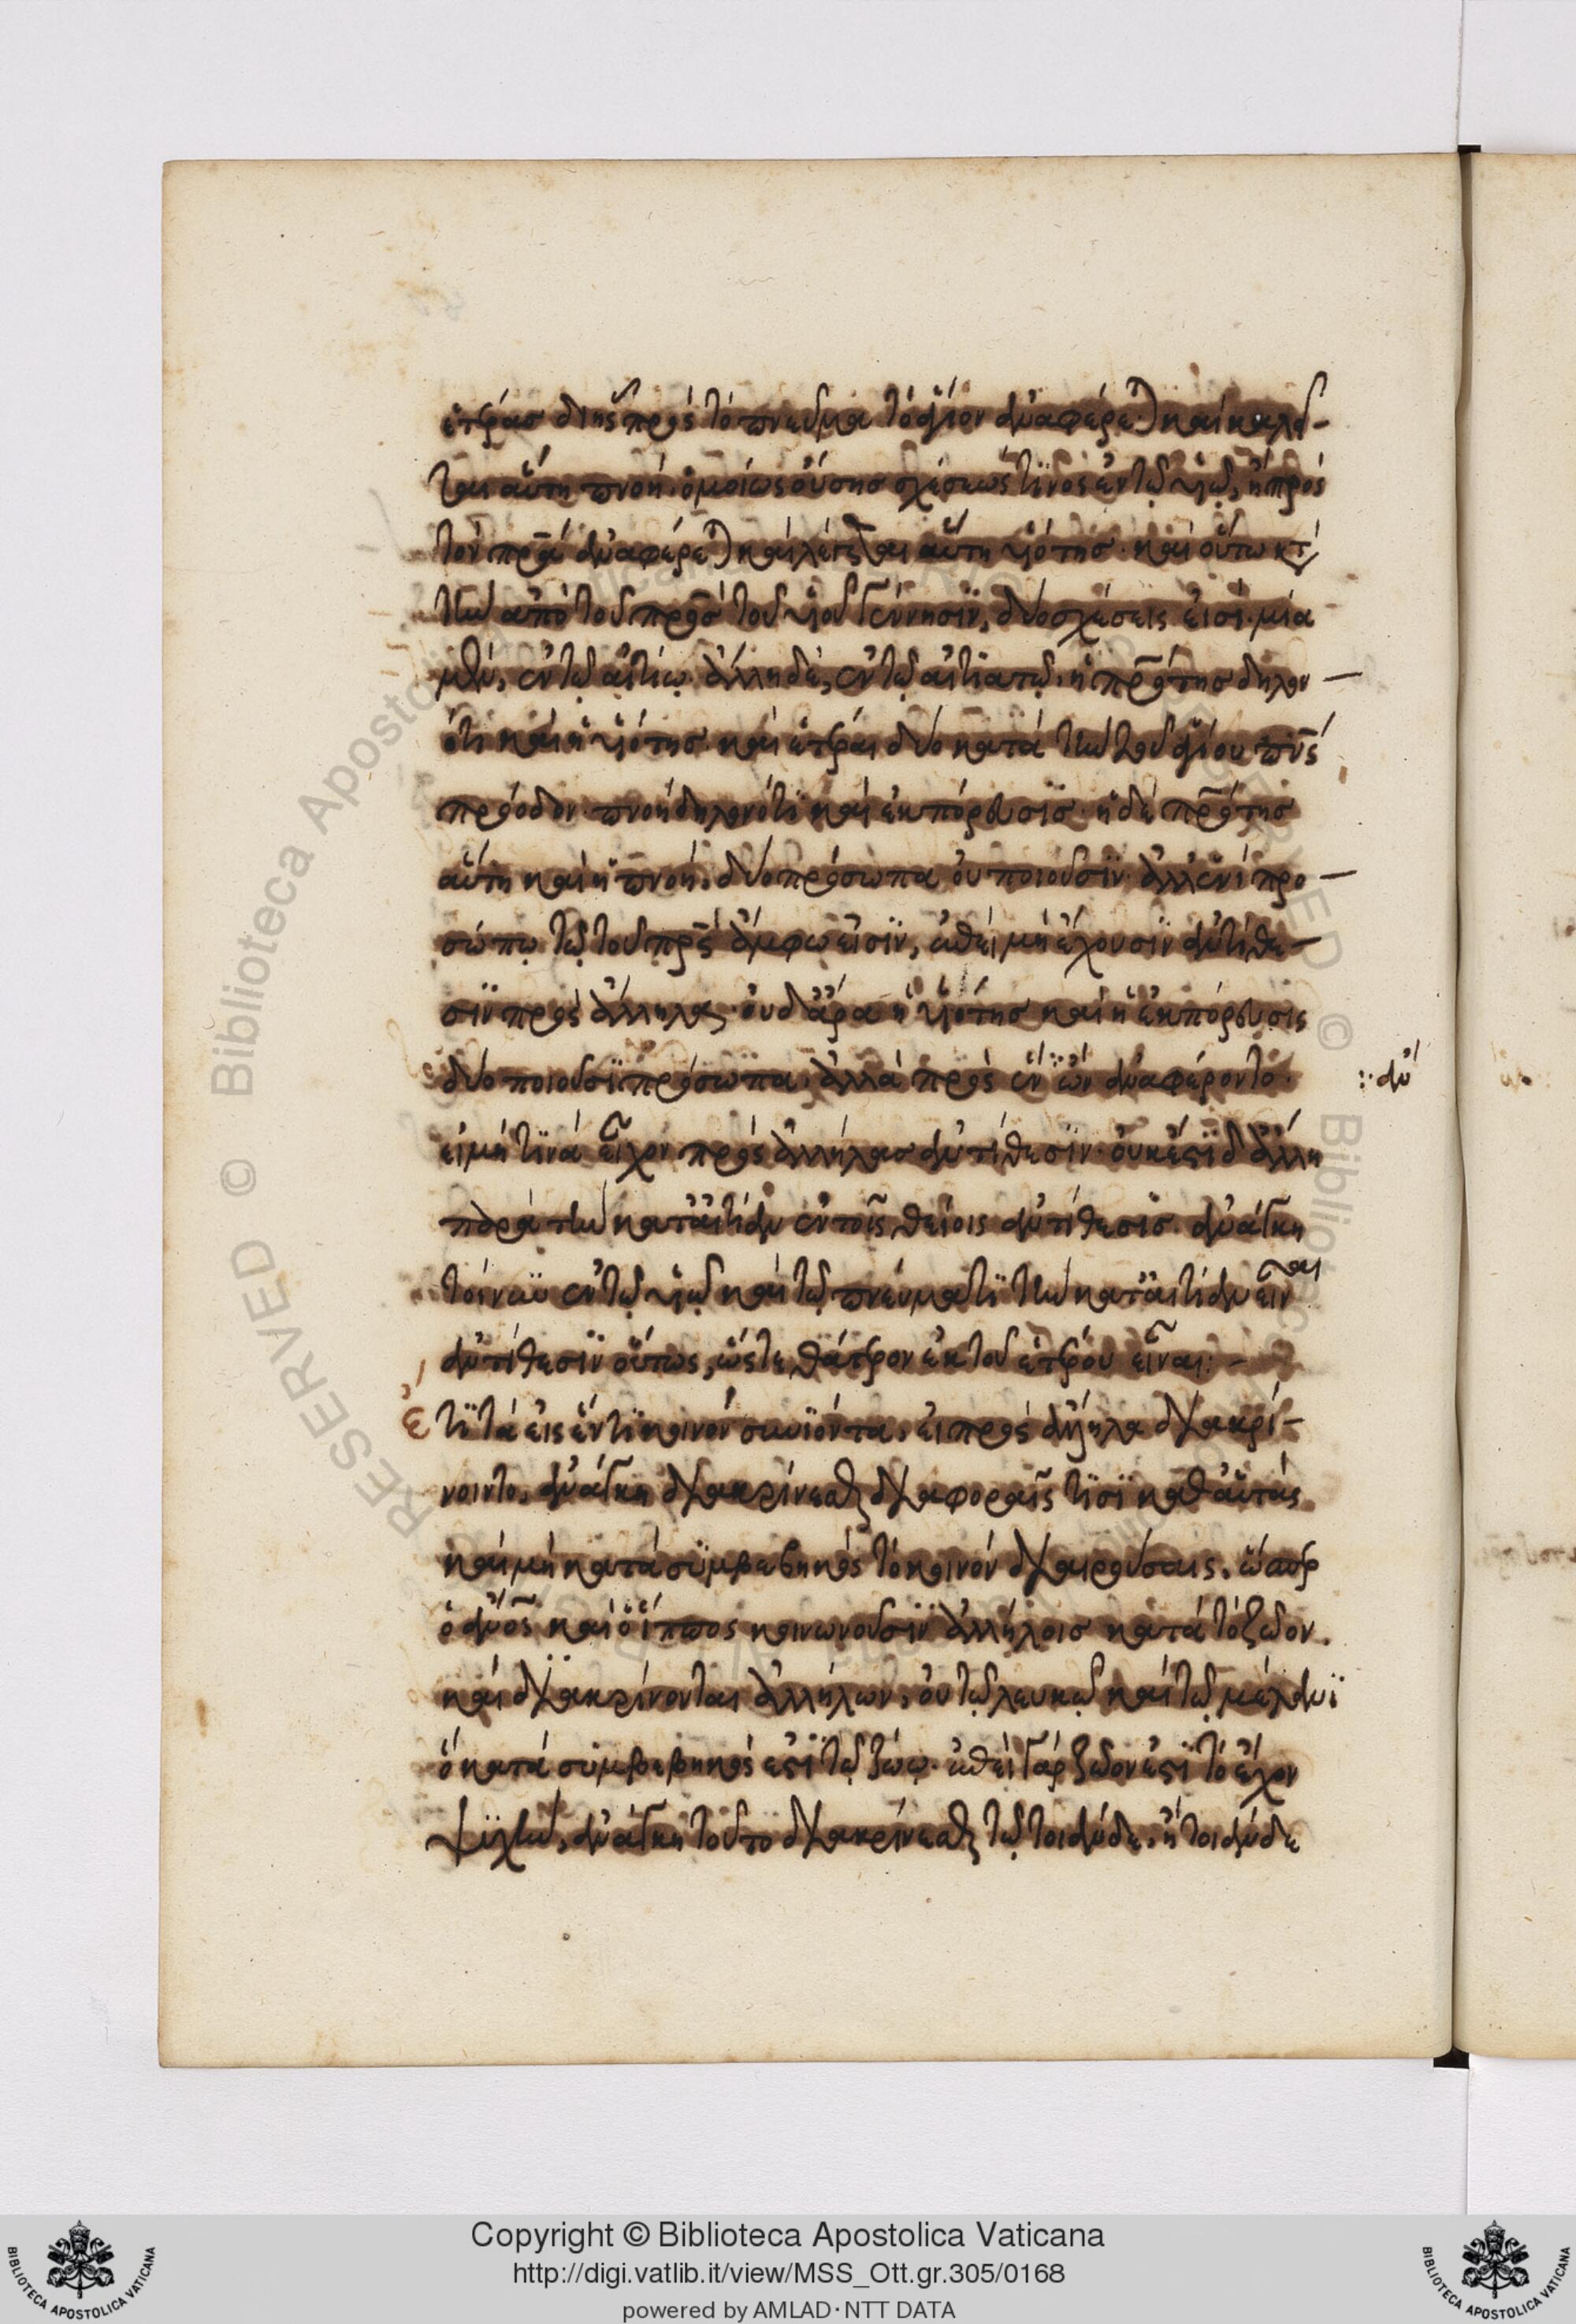 ἑτέρας δι' ἧς πρὸς τὸ πνεῦμα τὸ ἅγιον ἀναφέρεται καὶ καλεῖ-
ται αὕτη πνοή. ὁμοίως οὔσης σχέσεώς τινος ἐν τῷ υἱῷ, ἣ πρὸς
τὸν πρα ἀναφέρεται καὶ λέγεται αὕτη υἱότης. καὶ οὕτω κατὰ
τὴν ἀπὸ τοῦ πρς τοῦ υἱοῦ γέννησιν, δύο σχέσεις εἰσί. μία
μὲν, ἐν τῷ αἰτίῳ. ἄλλη δὲ, ἐν τῷ αἰτιατῷ. ἡ πρότης δηλον
ότι καὶ ἡ υἱότης. καὶ ἕτεραι δύο κατὰ τὴν τοῦ ἁγίου πνς
πρόοδον. πνοὴ δηλονότι καὶ ἐκπόρευσις. ἡ δὲ πρότης
αὕτη καὶ ἡ πνοὴ, δύο πρόσωπα οὐ ποιοῦσιν. ἀλλ' ἑνὶ προ-
σώπῳ τῷ τοῦ πρς ἄμφω εἰσὶν, ἐπεὶ μὴ ἔχουσιν ἀντίθε-
σιν πρὸς ἄλληλα. οὐδ' ἄρα ἡ υἱότης καὶ ἡ ἐκπόρευσις
δύο ποιοῦσι πρόσωπα. ἀλλὰ πρὸς ἓν ∵ ὧν ἀναφέροντο.
∵ ἂν
εἰ μή τινα εἶχον πρὸς ἀλλήλας ἀντίθεσιν. οὐκ ἔστι δ' ἄλλη
παρὰ τὴν κατ' αἰτίαν ἐν τοῖς θείοις ἀντίθεσις. ἀνάγκη
τοίνυν ἐν τῷ υἱῷ καὶ τῷ πνεύματι τὴν κατ' αἰτίαν εἶναι
ἀντίθεσιν οὕτως, ὥστε θάτερον ἐκ τοῦ ἑτέρου εἶναι: -
ἔτι τὰ εἰς ἕν τι κοινὸν συνιόντα, εἰ πρὸς ἄλληλα διακρί-
νοιντο, ἀνάγκη διακρίνεσθαι διαφοραῖς τισι καθ' αὑτὰς
καὶ μὴ κατὰ συμβεβηκὸς τὸ κοινὸν διαιρούσαις. ὥσπερ
ὁ ἀνος καὶ ὁ ἵππος κοινωνοῦσιν ἀλλήλοις κατὰ τὸ ζῶον.
καὶ διακρίνονται ἀλλήλων, οὐ τῷ λευκῷ καὶ τῷ μέλανι
ὃ κατὰ συμβεβηκός ἐστι τῷ ζώῳ. ἐπεὶ γὰρ ζῶόν ἐστι τὸ ἔχον
ψυχὴν, ἀνάγκη τοῦτο διακρίνεσθαι τῷ τοιάνδε, ἢ τοιάνδε